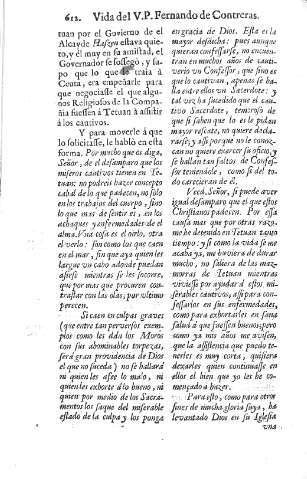 612. Vida del V.P. Fernando de Contreras.
tuan por el Govierno de el
Alcayde Haszen estava quie-
to, y èl muy en su amistad, el
Governador se sossegò, y sa-
po que lo que traìa à
Ceuta, era empeñarle para
negociasse el que algu-
nos Religiosos de la Compa-
ñia fuessen à Tetuan à assistir
à los cautivos.
Y para moverle à que
lo solicitasse, le hablò en esta
forma. Por mucho que os diga,
Señor, de el desamparo que los
miseros cautivos tienen en Te-
tuan: no podreis hazer concepto
cabal de lo que padecen, no solo
en los trabajos del cuerpo, sino
lo que mas de sentir es, en los
achaques y enfermedades de el
alma. Una cosa es el oirlo, otra
el verlo: sin como los que caen
en el mar, sin que aya quien les
largue un cabo adonde puedan
asirse mientras se les socorre,
que por mas que procuren con-
trastar con las olas; por ultimo
perecen.
Si caen en culpas graves
(que entre tan perversos exem-
plos como les dàn los Moros
con sus abominables torpezas,
serà gran providencia de Dios
el que no suceda) no se hallarà
ni quien les afee lo malo, ni
quien les exhorte à lo bueno, ni
quien por medio de los Sacra-
mentos los saque del miserable
estado de la culpa y los ponga
en gracia de Dios. Esta es la
mayor desdicha: pues aunque
quieran confessarse, no encuen-
tran en muchos años de cauti-
verio un Confessor, que sino es
que lo cautivan, apenas se ha-
lla entre ellos un Sacerdote: y
tal vez ha sucedido que el cau-
tivo Sacerdote, temeroso de
que si saben que lo es le pidan
mayor rescate, no quiere decla-
rarse; y assi porque no le conoz-
can no quiere exercer su oficio, y
se hallan tan faltos de Confes-
sor teniendole, como si del to-
do carecieran de èl.
Vea, Señor, si puede aver
igual desamparo que el que estos
Christianos padecen. Por esta
causa mas que por otras razo-
ne he detenido en Tetuan tanto
tiempo: y si como la vida se me
acaba ya, me huviera de durar
mucho, no saliera de las maz-
morras de Tetuan mientras
viviesse por ayudar à estos mi-
serables cautivos, assi para con-
fessarlos en sus enfermedades,
como para exhortarlos en sana
salud à que fuessen buenos; pero
como ya mis años me avisen,
que la assistencia que puedo te-
nerles es muy corta, quisiera
dexarles quien continuasse en
ellos el bien que yo les he co-
mençado à hazer.
Para esto, como para otros
fines de mucha gloria suya, ha
levantado Dios en su Iglesia
una